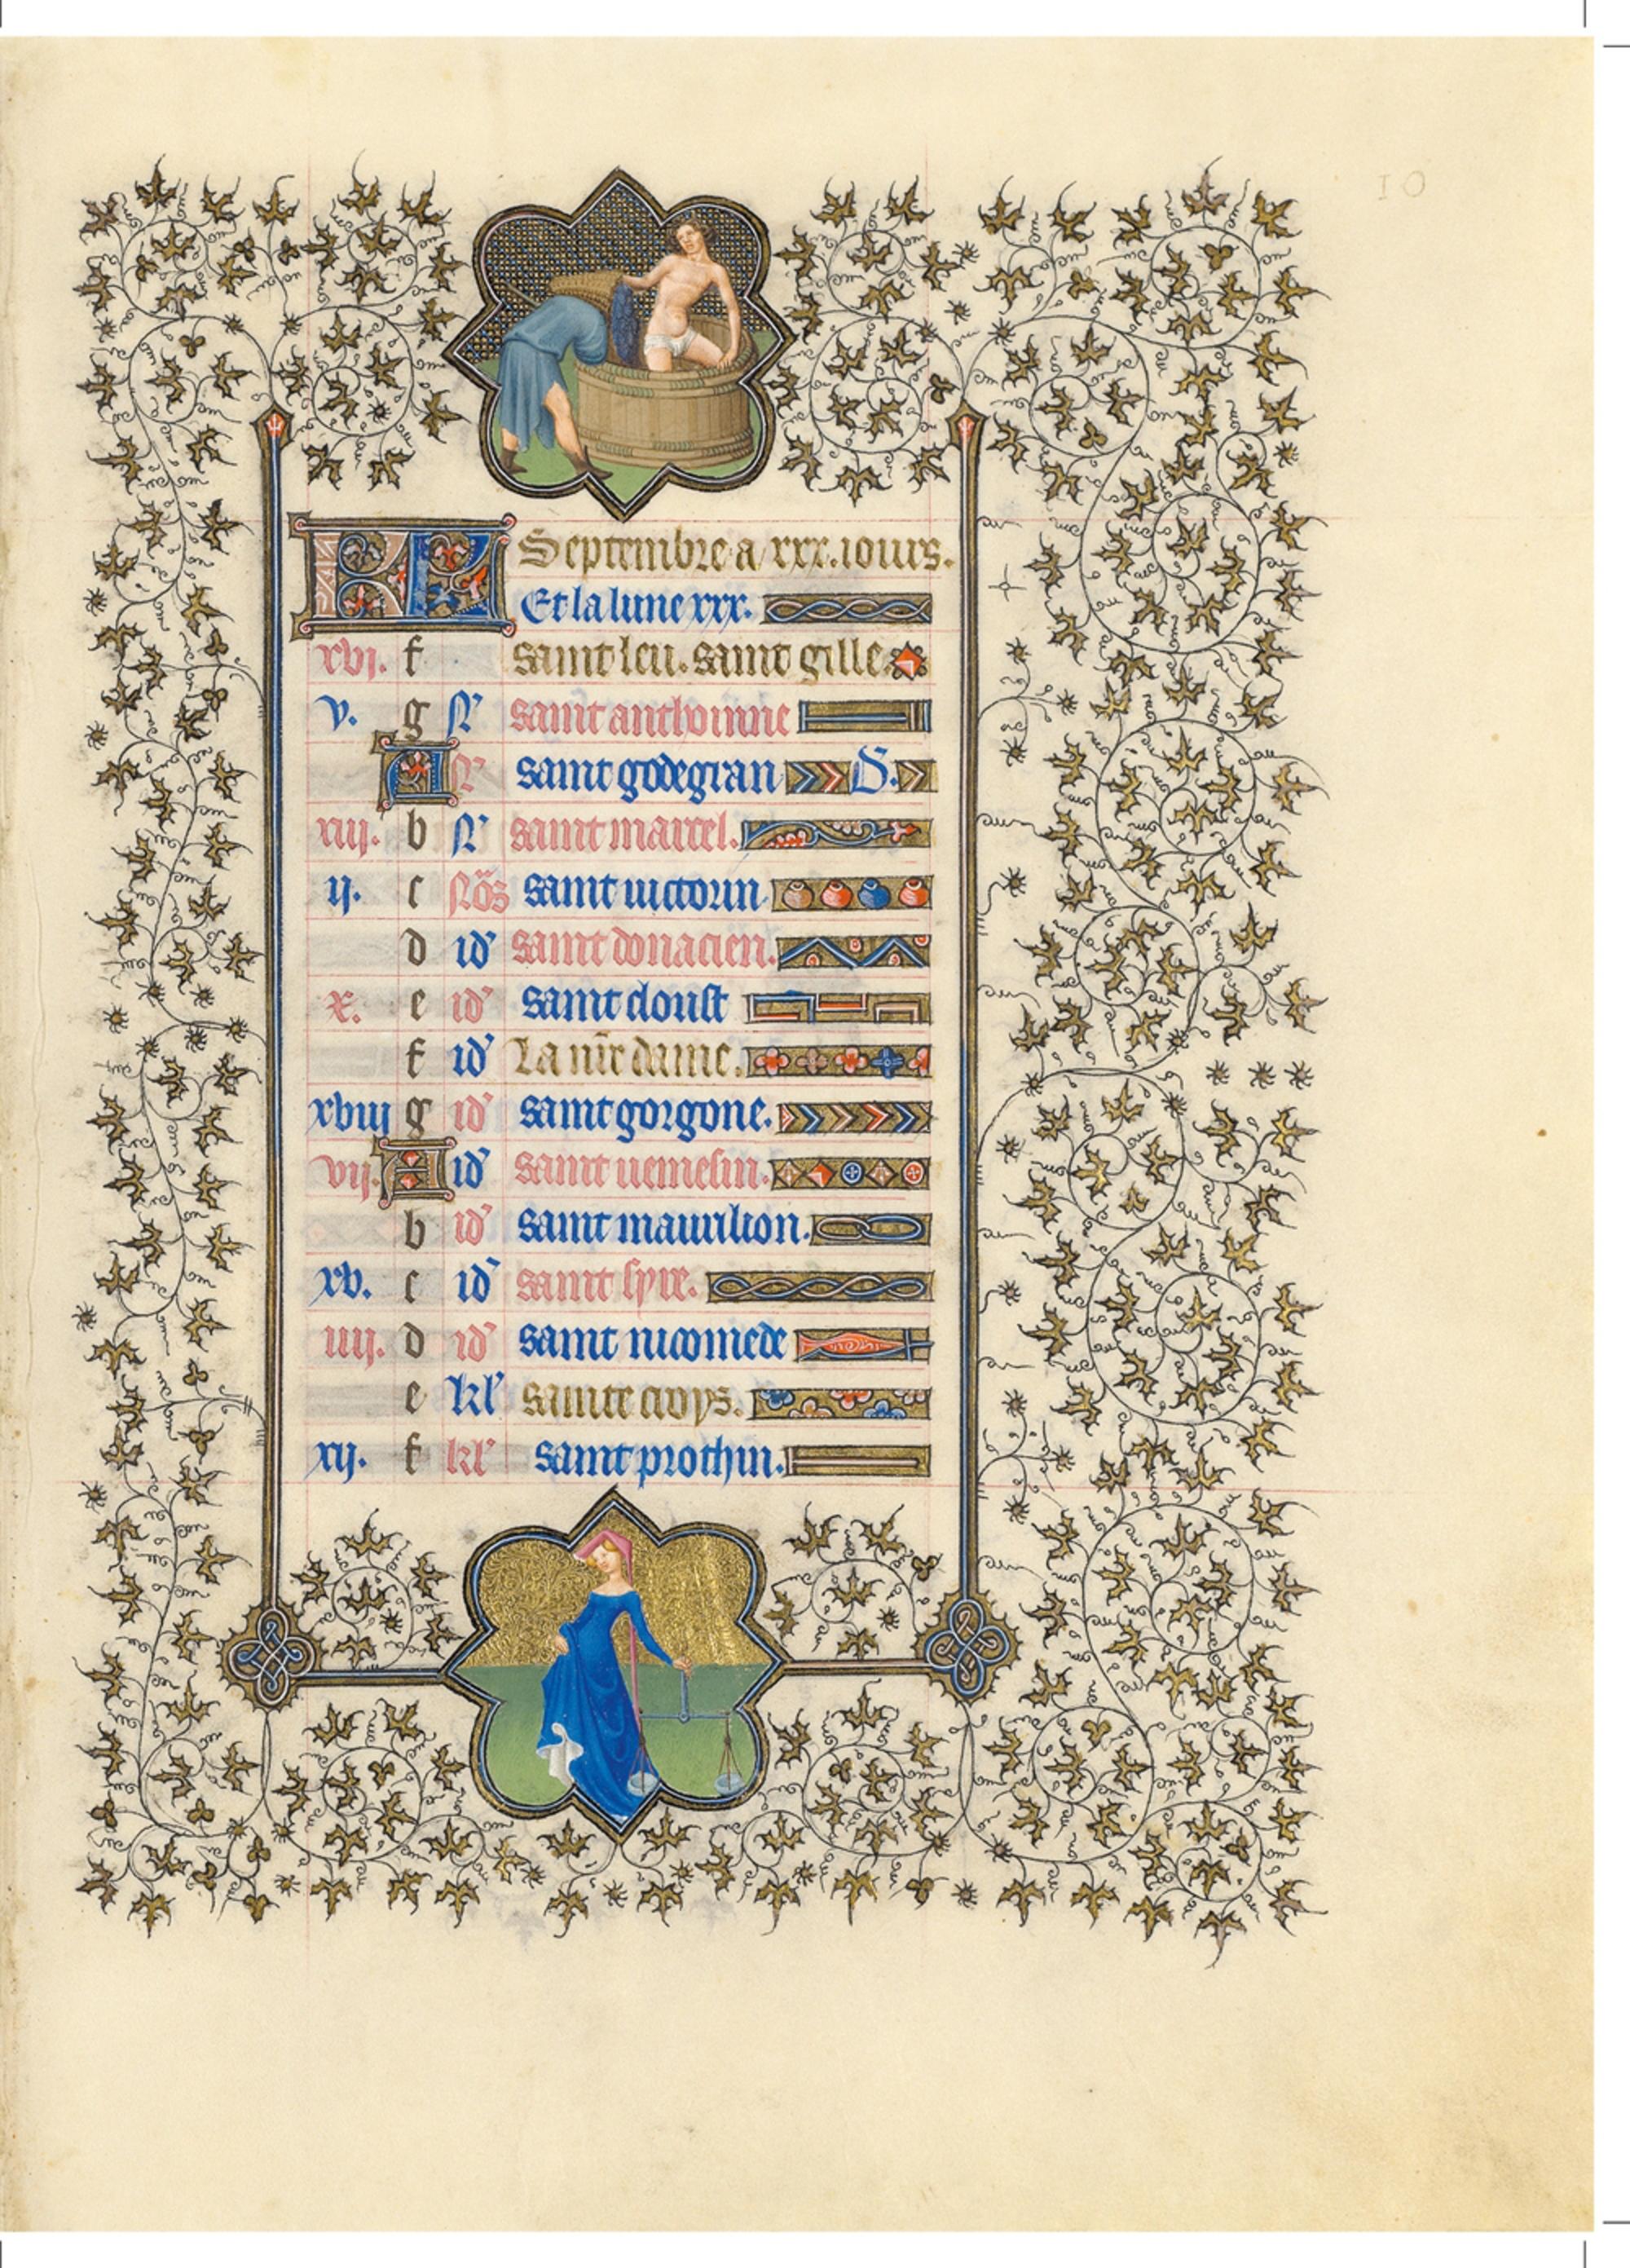 10
KL Septembre a xxx. iours.
Et la lune xxx.
xvj. f saint leu. saint gille
v. g N' saint anthoinne
A N' saint godegran D.
xiij. b N' saint marcel.
ij. c Nōs saint uictorin
d id' saint donacien.
x. e id' saint cloust
f id' La nr̄e dame.
xviij g id' saint gorgone.
vij. A id' saint nemesin.
b id' saint maurilion.
xv. c id' saint syre.
iiij. d id' saint nicomede
e kl' sainte croys.
xij. f kl' saint prothin.